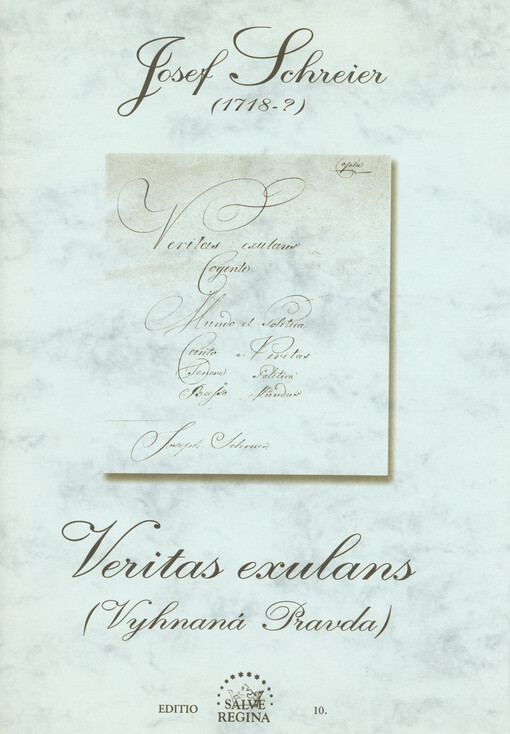 Josef Schreier
(1718-?)
Copia
Veritas exulans
Cogente
Mundo et Politica
Canto Veritas
Tenore Politica
Basso Mundus
Joseph Schreier
Veritas exulans
(Vyhnaná Pravda)
EDITIO SALVE REGINA 10.